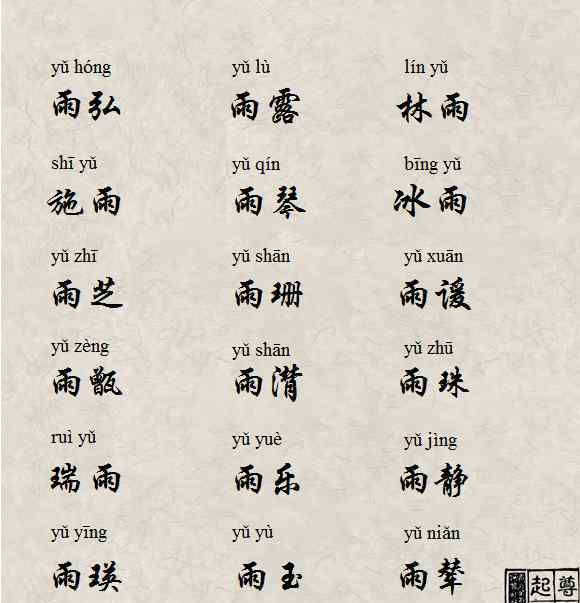 yǔ hóng yǔ lù lín yǔ
雨弘 雨露 林雨
shī yǔ yǔ qín bīng yǔ
施雨 雨琴 冰雨
yǔ zhī yǔ shān yǔ xuān
雨芝 雨珊 雨谖
yǔ zèng yǔ shān yǔ zhū
雨甑 雨潸 雨珠
ruì yǔ yǔ yuè yǔ jìng
瑞雨 雨乐 雨静
yǔ yīng yǔ yù yǔ niǎn
雨瑛 雨玉 雨辇
起尊